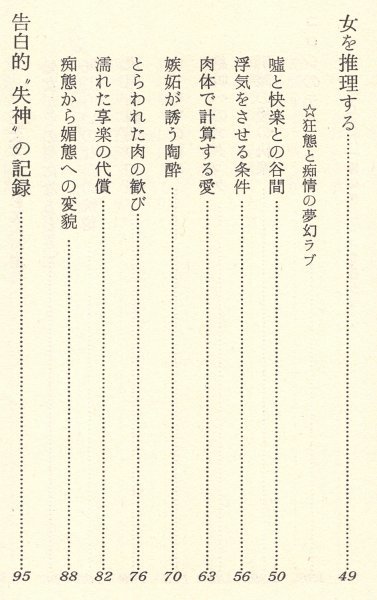 女を推理する……………………49
☆狂態と痴情の夢幻ラブ
嘘と快楽との谷間……………………50
浮気をさせる条件……………………56
肉体で計算する愛……………………63
嫉妬が誘う陶酔……………………70
とらわれた肉の歓び……………………76
濡れた享楽の代償……………………82
痴態から媚態への変貌……………………88
告白的〝失神〟の記録……………………95